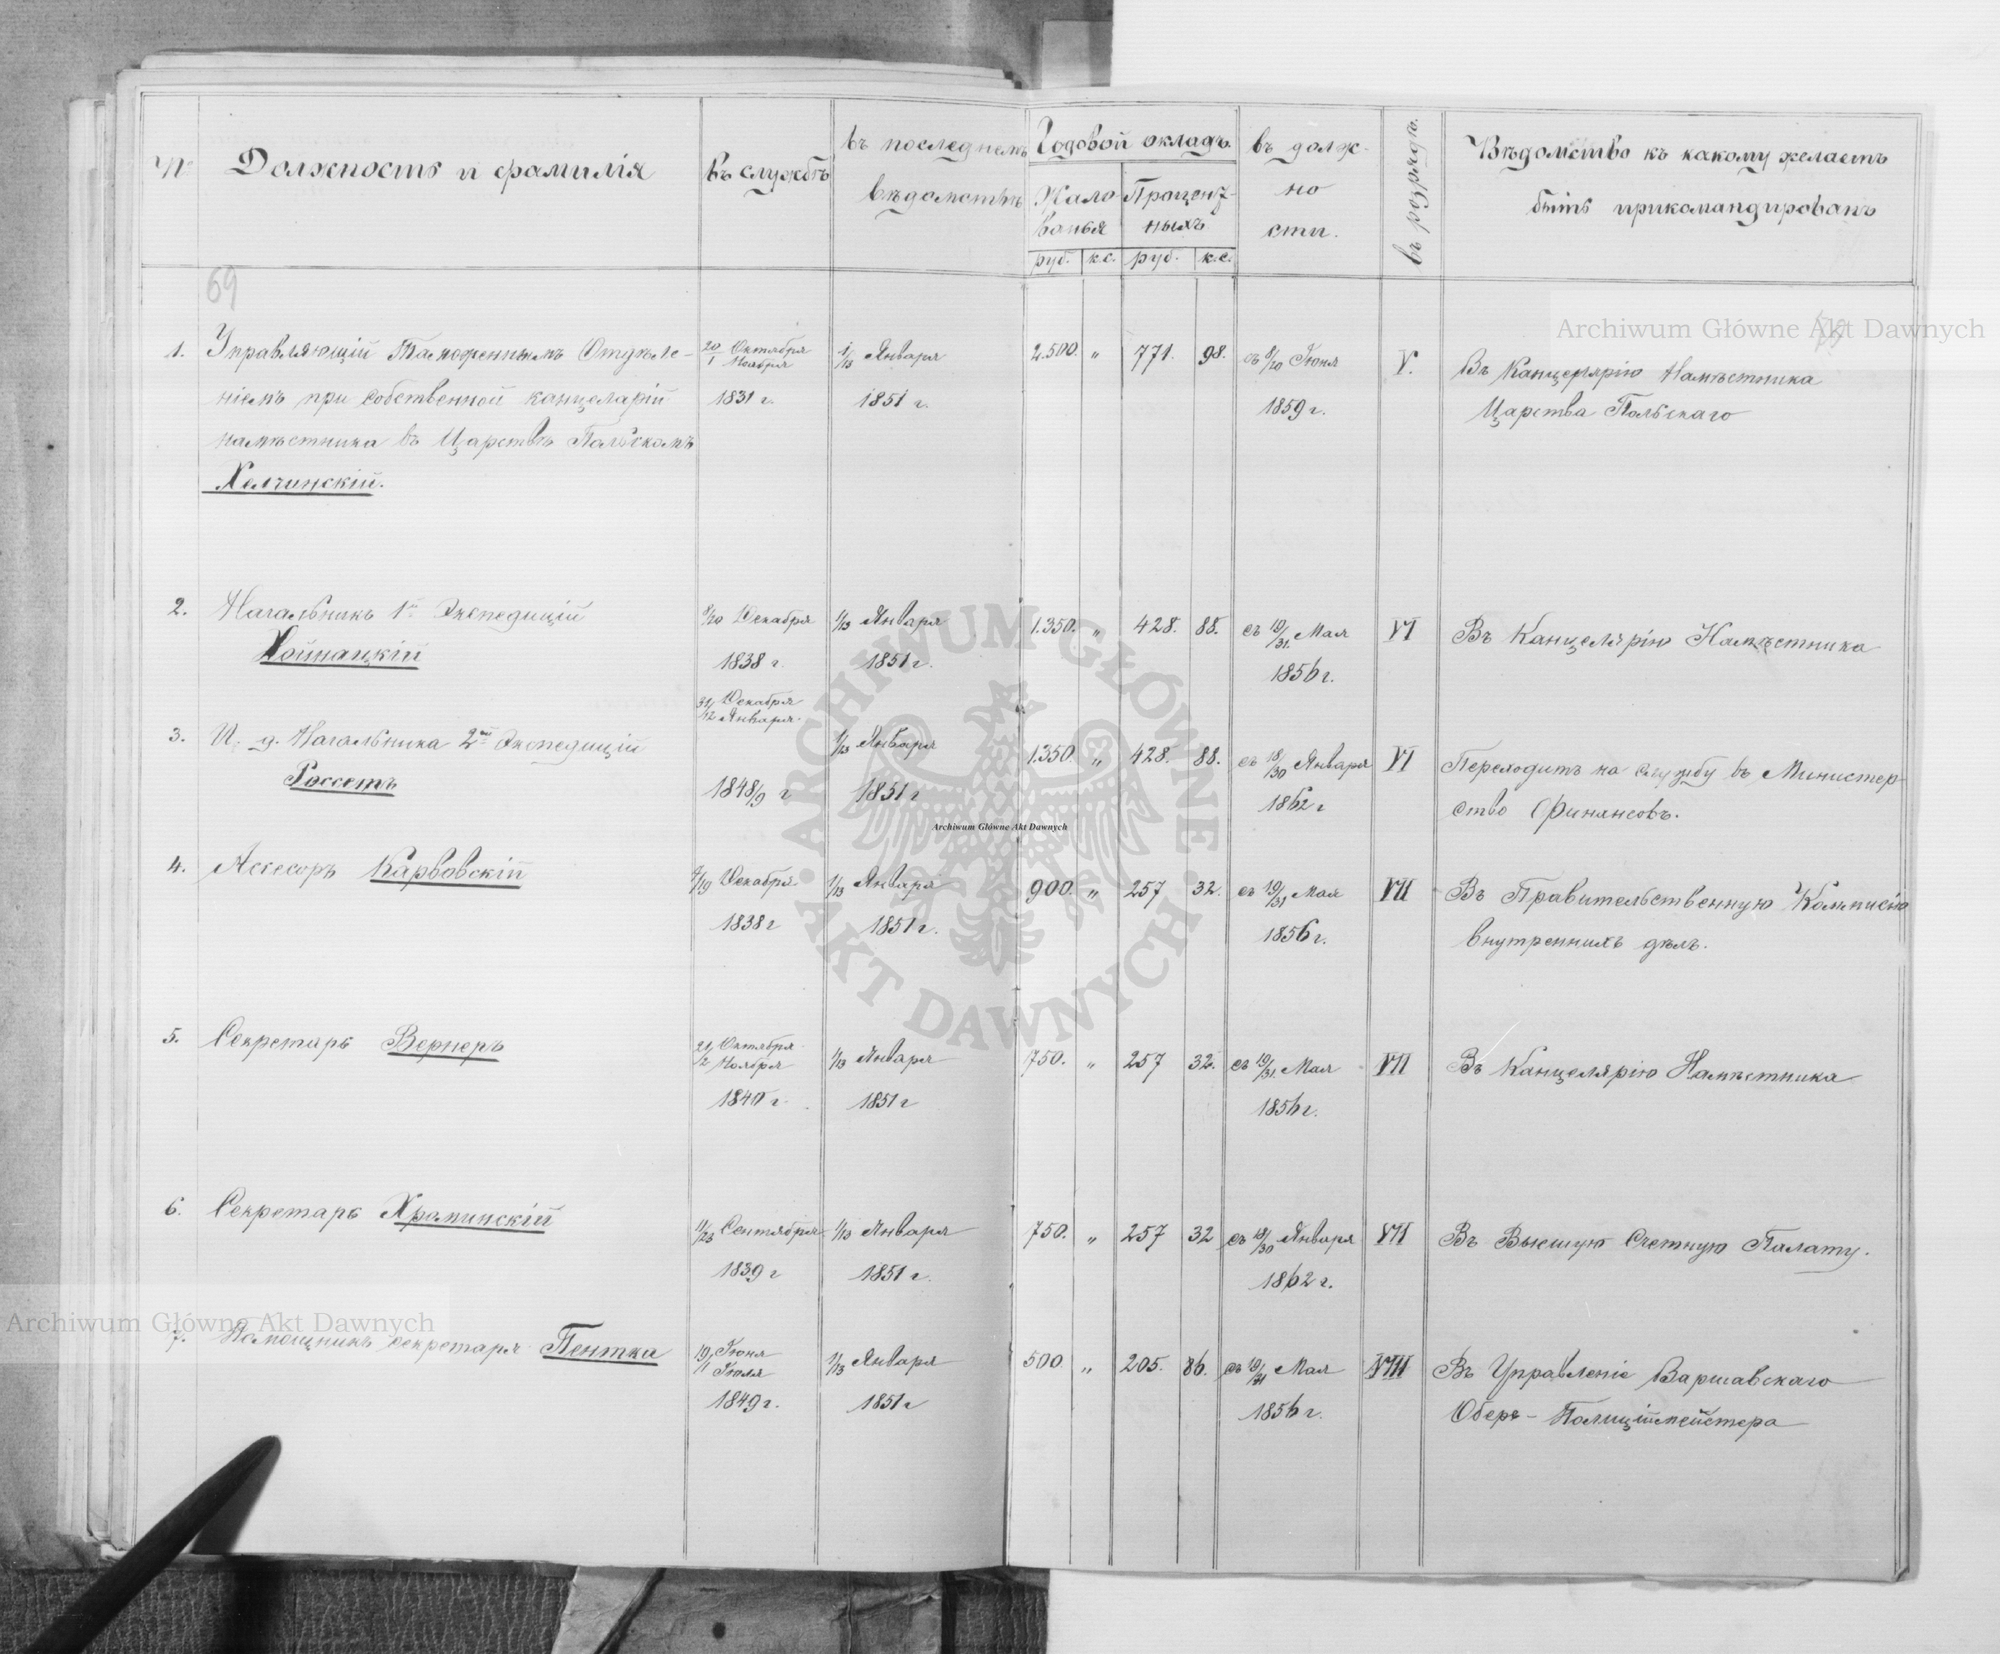 № Должность и фамилія Въ службѣ въ последнемъ вѣдомствѣ Годовой окладъ въ долж- въ разрядѣ. Вѣдомство къ какому желаетъ
Жало- Процент- но быть прикомандированъ
ванья ныхъ сти.
руб. к.с. руб. к.с.
69
1. Управляющій Таможеннымъ Отдѣле- 20/1 Октября Ноября 1/13 Января 2.500. " 771. 98. съ 8/20 Іюня V. Въ Канцелярію Намѣстника
ніемъ при собственной канцеляріи 1831 г. 1851 г. 1859 г. Царства Польскаго
намѣстника въ Царствѣ Польскомъ
Хелчинскій.
2. Начальникъ 1й Экспедиціи 8/20 Декабря 1/13 Января 1.350. " 428. 88. съ 19/31 Мая VI Въ Канцелярію Намѣстника
Хойнацкій 1838 г. 1851 г. 1856 г.
31/12 Декабря Января
3. И. д. Начальника 2й Экспедиціи 1/13 Января 1.350. " 428. 88. съ 18/30 Января VI Переходитъ на службу въ Министер-
Россетъ 1848/9 г 1851 г 1862 г ство Финансовъ.
4. Ассесоръ Карвовскій 7/19 Декабря 1/13 Января 900. " 257 32. съ 19/31 Мая VII Въ Правительственную Коммисію
1838 г 1851 г. 1856 г. внутреннихъ дѣлъ.
5. Секретарь Вернеръ 21/2 Октября Ноября 1/13 Января 750. " 257 32. съ 19/31 Мая VII Въ Канцелярію Намѣстника
1840 г. 1851 г 1856 г.
6. Секретарь Храминскій 11/23 Сентября 1/13 Января 750. " 257 32 съ 18/30 Января VII Въ Высшую Счетную Палату.
1839 г 1851 г. 1862 г.
7. Помощникъ секретаря Пентка 19/1 Іюня Іюля 1/13 Января 500 " 205. 86. съ 19/31 Мая VIII Въ Управленіе Варшавскаго
1849 г. 1851 г 1856 г. Оберъ-Полиціймейстера
Archiwum Główne Akt Dawnych
ARCHIWUM GŁÓWNE AKT DAWNYCH
Archiwum Główne Akt Dawnych
Archiwum Główne Akt Dawnych